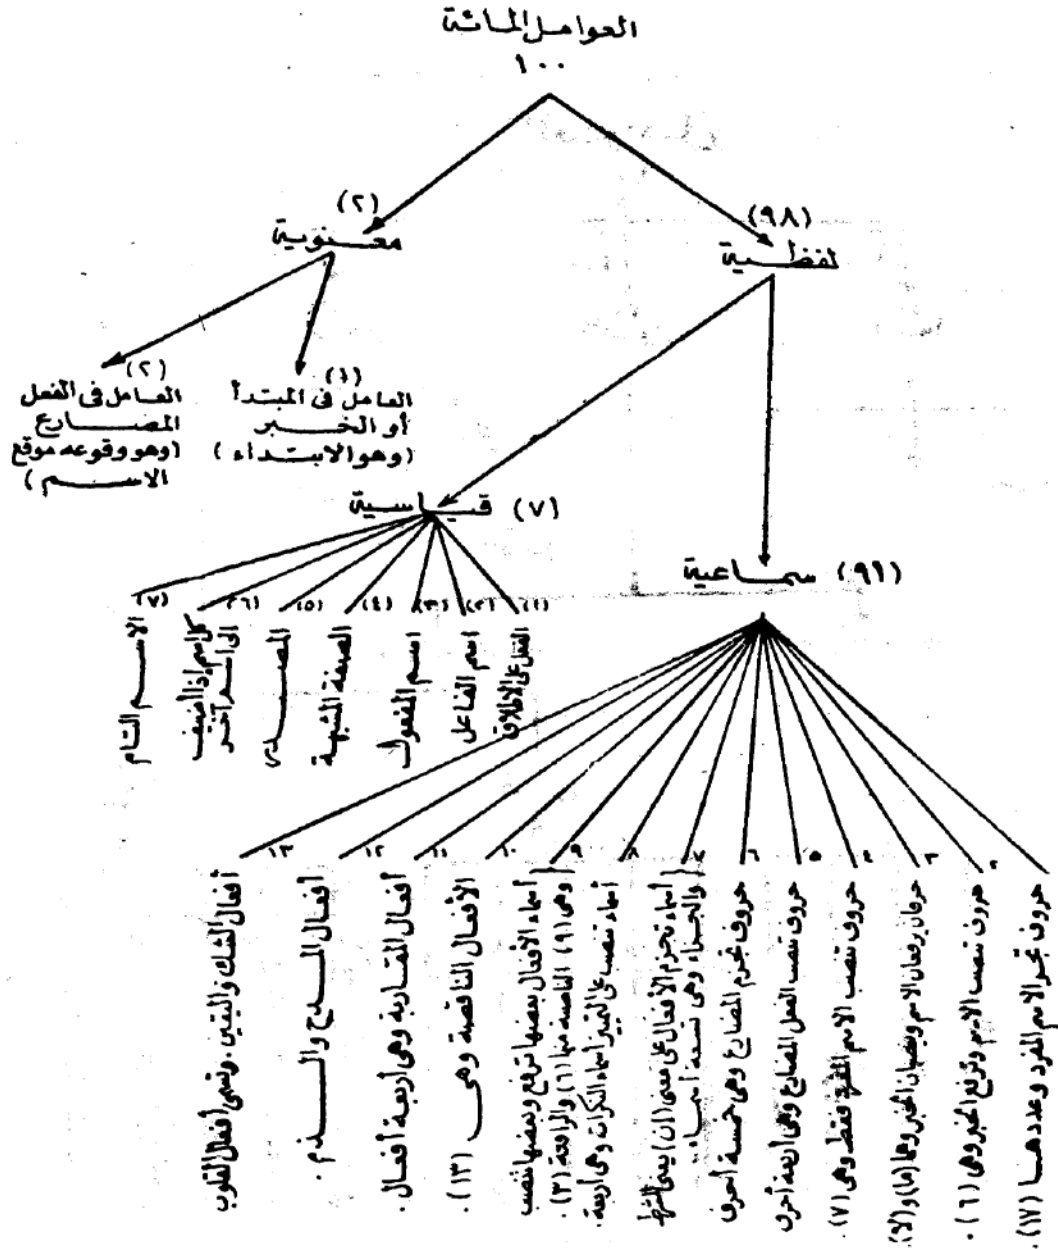 العوامل المائة
١٠٠
(٩٨)
لفظية
(٢)
معنوية
(١)
العامل في المبتدأ
أو الخبر
(وهو الابتداء)
(٢)
العامل في الفعل
المضارع
(وهو وقوعه موقع
الاسم)
(٧) قياسية
(١)
الفعل على الاطلاق
(٢)
اسم الفاعل
(٣)
اسم المفعول
(٤)
الصفة المشبهة
(٥)
المصدر
(٦)
كل اسم إذا أضيف
إلى اسم آخر
(٧)
الاسم التام
(٩١) سماعية
حروف تجر الاسم المفرد وعددها (١٧).
٢
حروف تنصب الاسم وترفع الخبر وهي (٦).
٣
حرفان يرفعان الاسم وينصبان الخبر وهما (ما) و(لا).
٤
حروف تنصب الاسم المفرد فقط وهي (٧).
٥
حروف تنصب الفعل المضارع وهي أربعة أحرف
٦
حروف تجزم المضارع وهي خمسة أحرف
٧
أسماء تجزم الأفعال على معنى (ان) يعني الشرط
والجزاء وهي تسعة أسماء.
٨
أسماء تنصب على التمييز أسماء النكرات وهي أربعة.
٩
أسماء الأفعال بعضها ترفع وبعضها تنصب
وهي (٩) الناصبة منها (٦) والرافعة (٣).
١٠
الأفعال الناقصة وهي (١٣).
١١
أفعال المقاربة وهي أربعة أفعال.
١٢
أفعال المدح والذم.
١٣
أفعال الشك واليقين. وتسمى أفعال القلوب